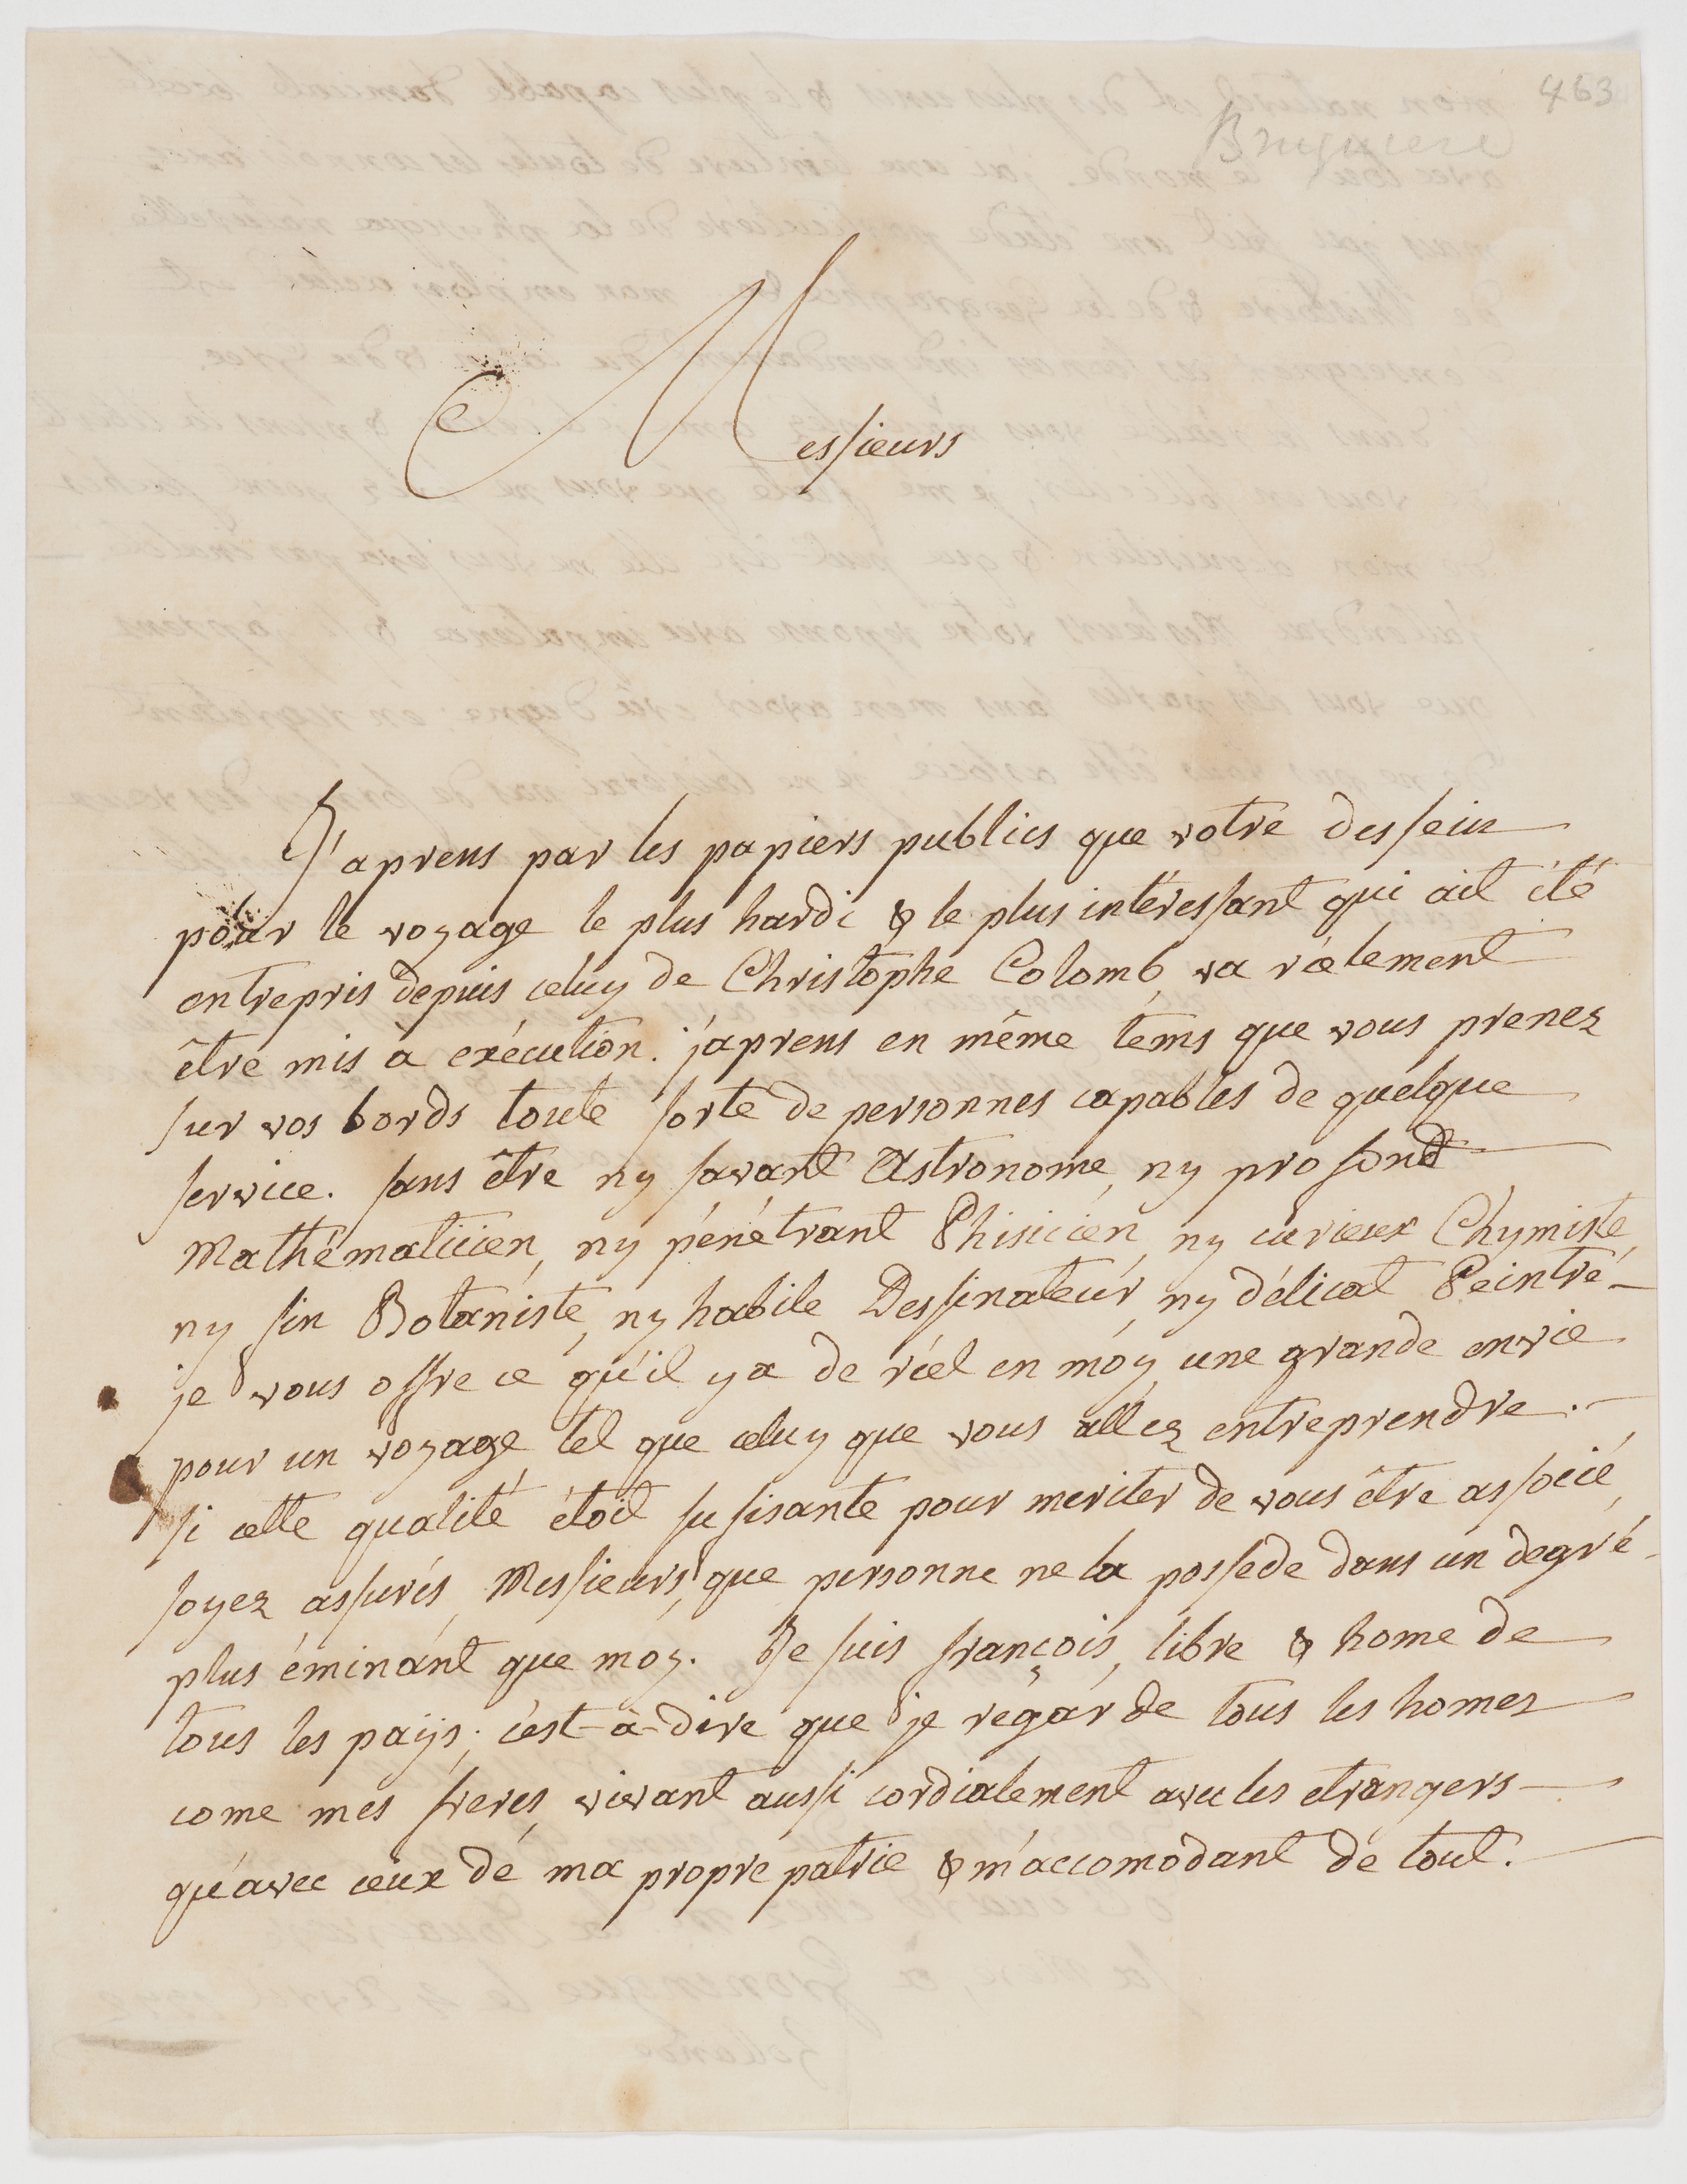 463
Bruguiere
Messieurs
J'aprens par les papiers publics que votre dessein
pour le voyage le plus hardi & le plus intéressant qui ait été
entrepris depuis celuy de Christophe Colomb, va réelement
être mis à exécution. j'aprens en même tems que vous prenez
sur vos bords toute sorte de personnes capables de quelque
service. sans être ny savant Astronome, ny profond
Mathématicien, ny pénétrant Phisicien, ny curieux Chymiste,
ny fin Botaniste, ny habile Dessinateur, ny délicat Peintre
je vous offre ce qu'il y a de réel en moy, une grande envie
pour un voyage tel que celuy que vous allez entreprendre.
si cette qualité étoit sufisante pour meriter de vous être associé,
soyez assurés, Messieurs, que personne ne la possede dans un degré
plus éminant que moy. Je suis françois, libre & home de
tous les païs; c'est-à-dire que je regarde tous les homes
come mes freres, vivant aussi cordialement avec les etrangers
qu'avec ceux de ma propre patrie & m'accomodant de tout.